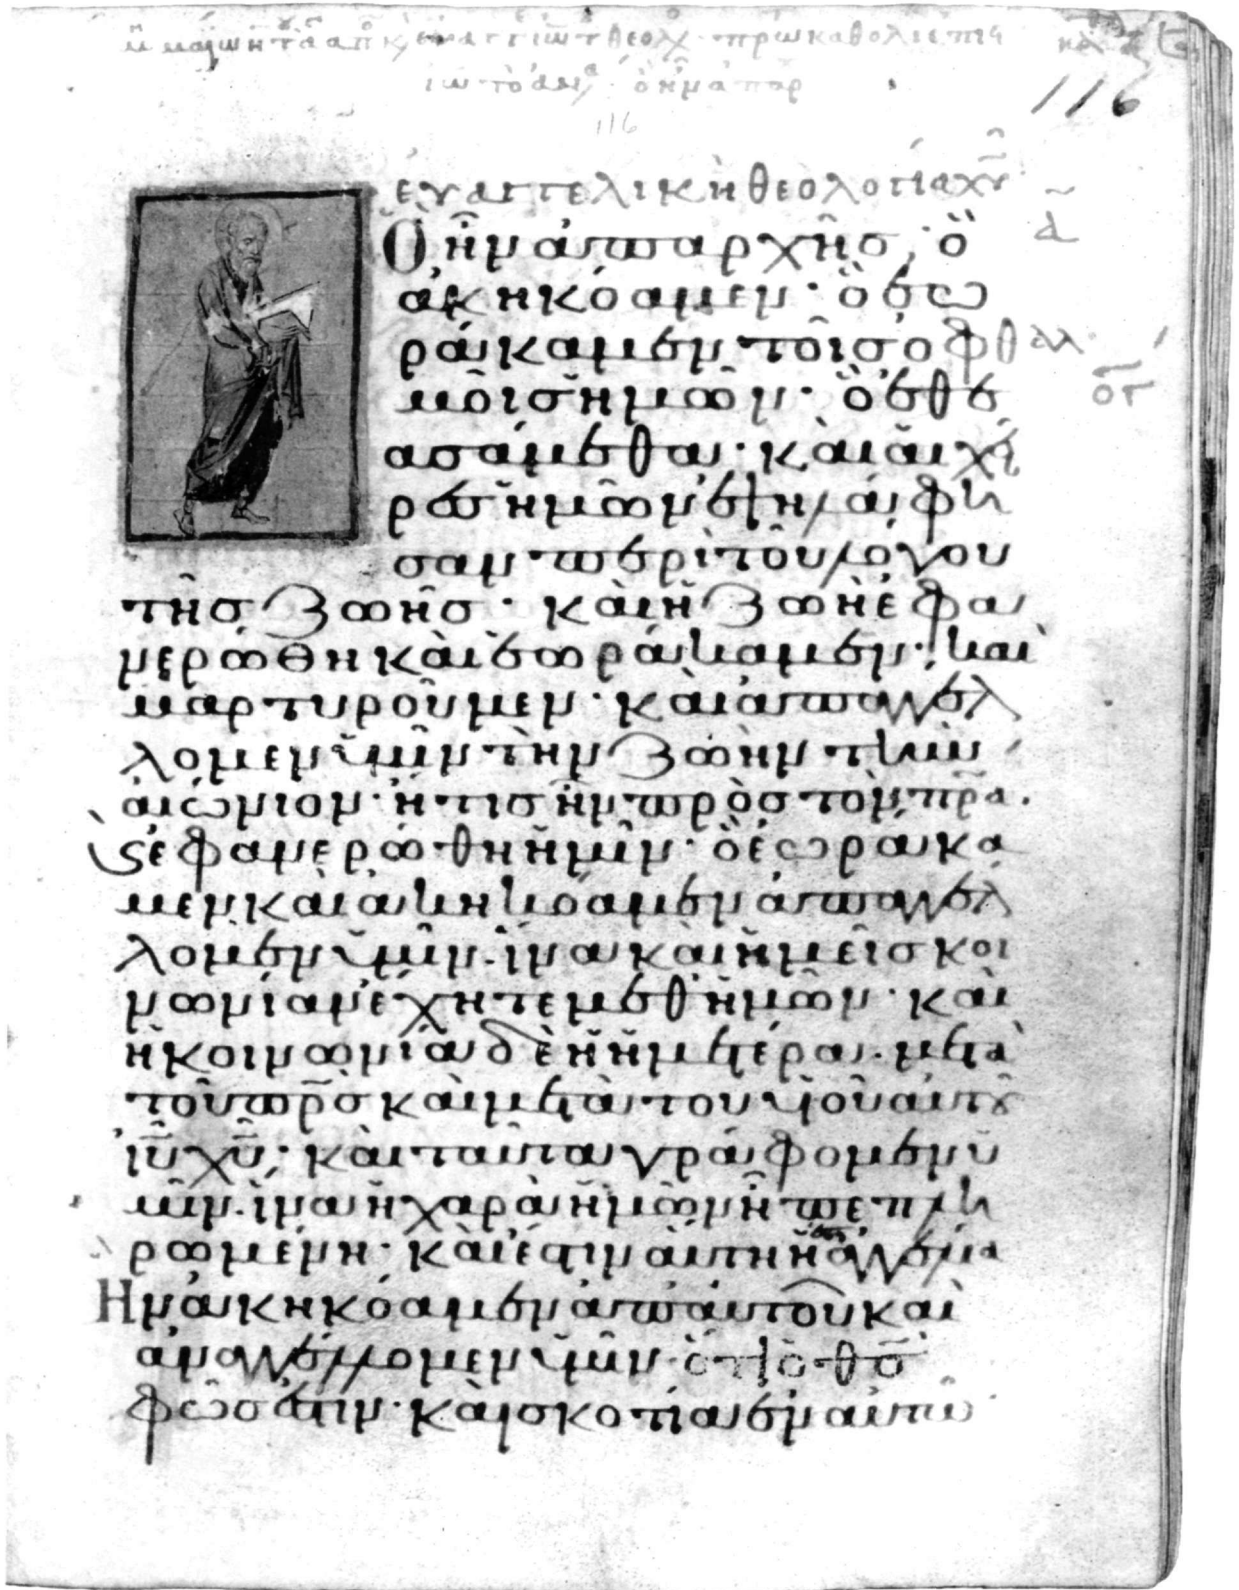 116
116
εὐαγγελικὴ θεολογία χυ
Ὃ ἦν ἀπαρχῆσ, ὃ
α
ἀκηκόαμεν· ὃ ἑω
ράκαμεν τοῖσ ὀφθαλ
μοῖσ ἡμῶν· ὃ ἐθε
ασάμεθα· καὶ αἱ χεῖ
ρεσ ἡμῶν ἐψηλάφη
σαν περὶ τοῦ λόγου
τῆσ ζωῆσ· καὶ ἡ ζωὴ ἐφα
νερώθη καὶ ἑωράκαμεν· καὶ
μαρτυροῦμεν· καὶ ἀπαγγέλ
λομεν ὑμῖν τὴν ζωὴν τὴν
αἰώνιον· ἥτισ ἦν πρὸσ τὸν πρα.
ἐφανερώθη ἡμῖν· ὃ ἑωράκα
μεν καὶ ἀκηκόαμεν ἀπαγγέλ
λομεν ὑμῖν. ἵνα καὶ ἡμεῖσ κοι
νωνίαν ἔχητε μεθ ἡμῶν· καὶ
ἡ κοινωνία δὲ ἡ ἡμετέρα. μετὰ
τοῦ πρσ καὶ μετὰ του υἱοῦ αὐτοῦ
ιυ χυ· καὶ ταῦτα γράφομεν ὑ
μῖν. ἵνα ἡ χαρὰ ἡμῶν ἦ πεπλη
ρωμένη· καὶ ἔστιν αὕτη ἡ ἀγγελία
Ἣν ἀκηκόαμεν ἀπ αὐτοῦ καὶ
ἀναγγέλλομεν ὑμῖν· ὅτι ὁ θσ
φῶσ ἐστιν· καὶ σκοτία ἐν αὐτῶ